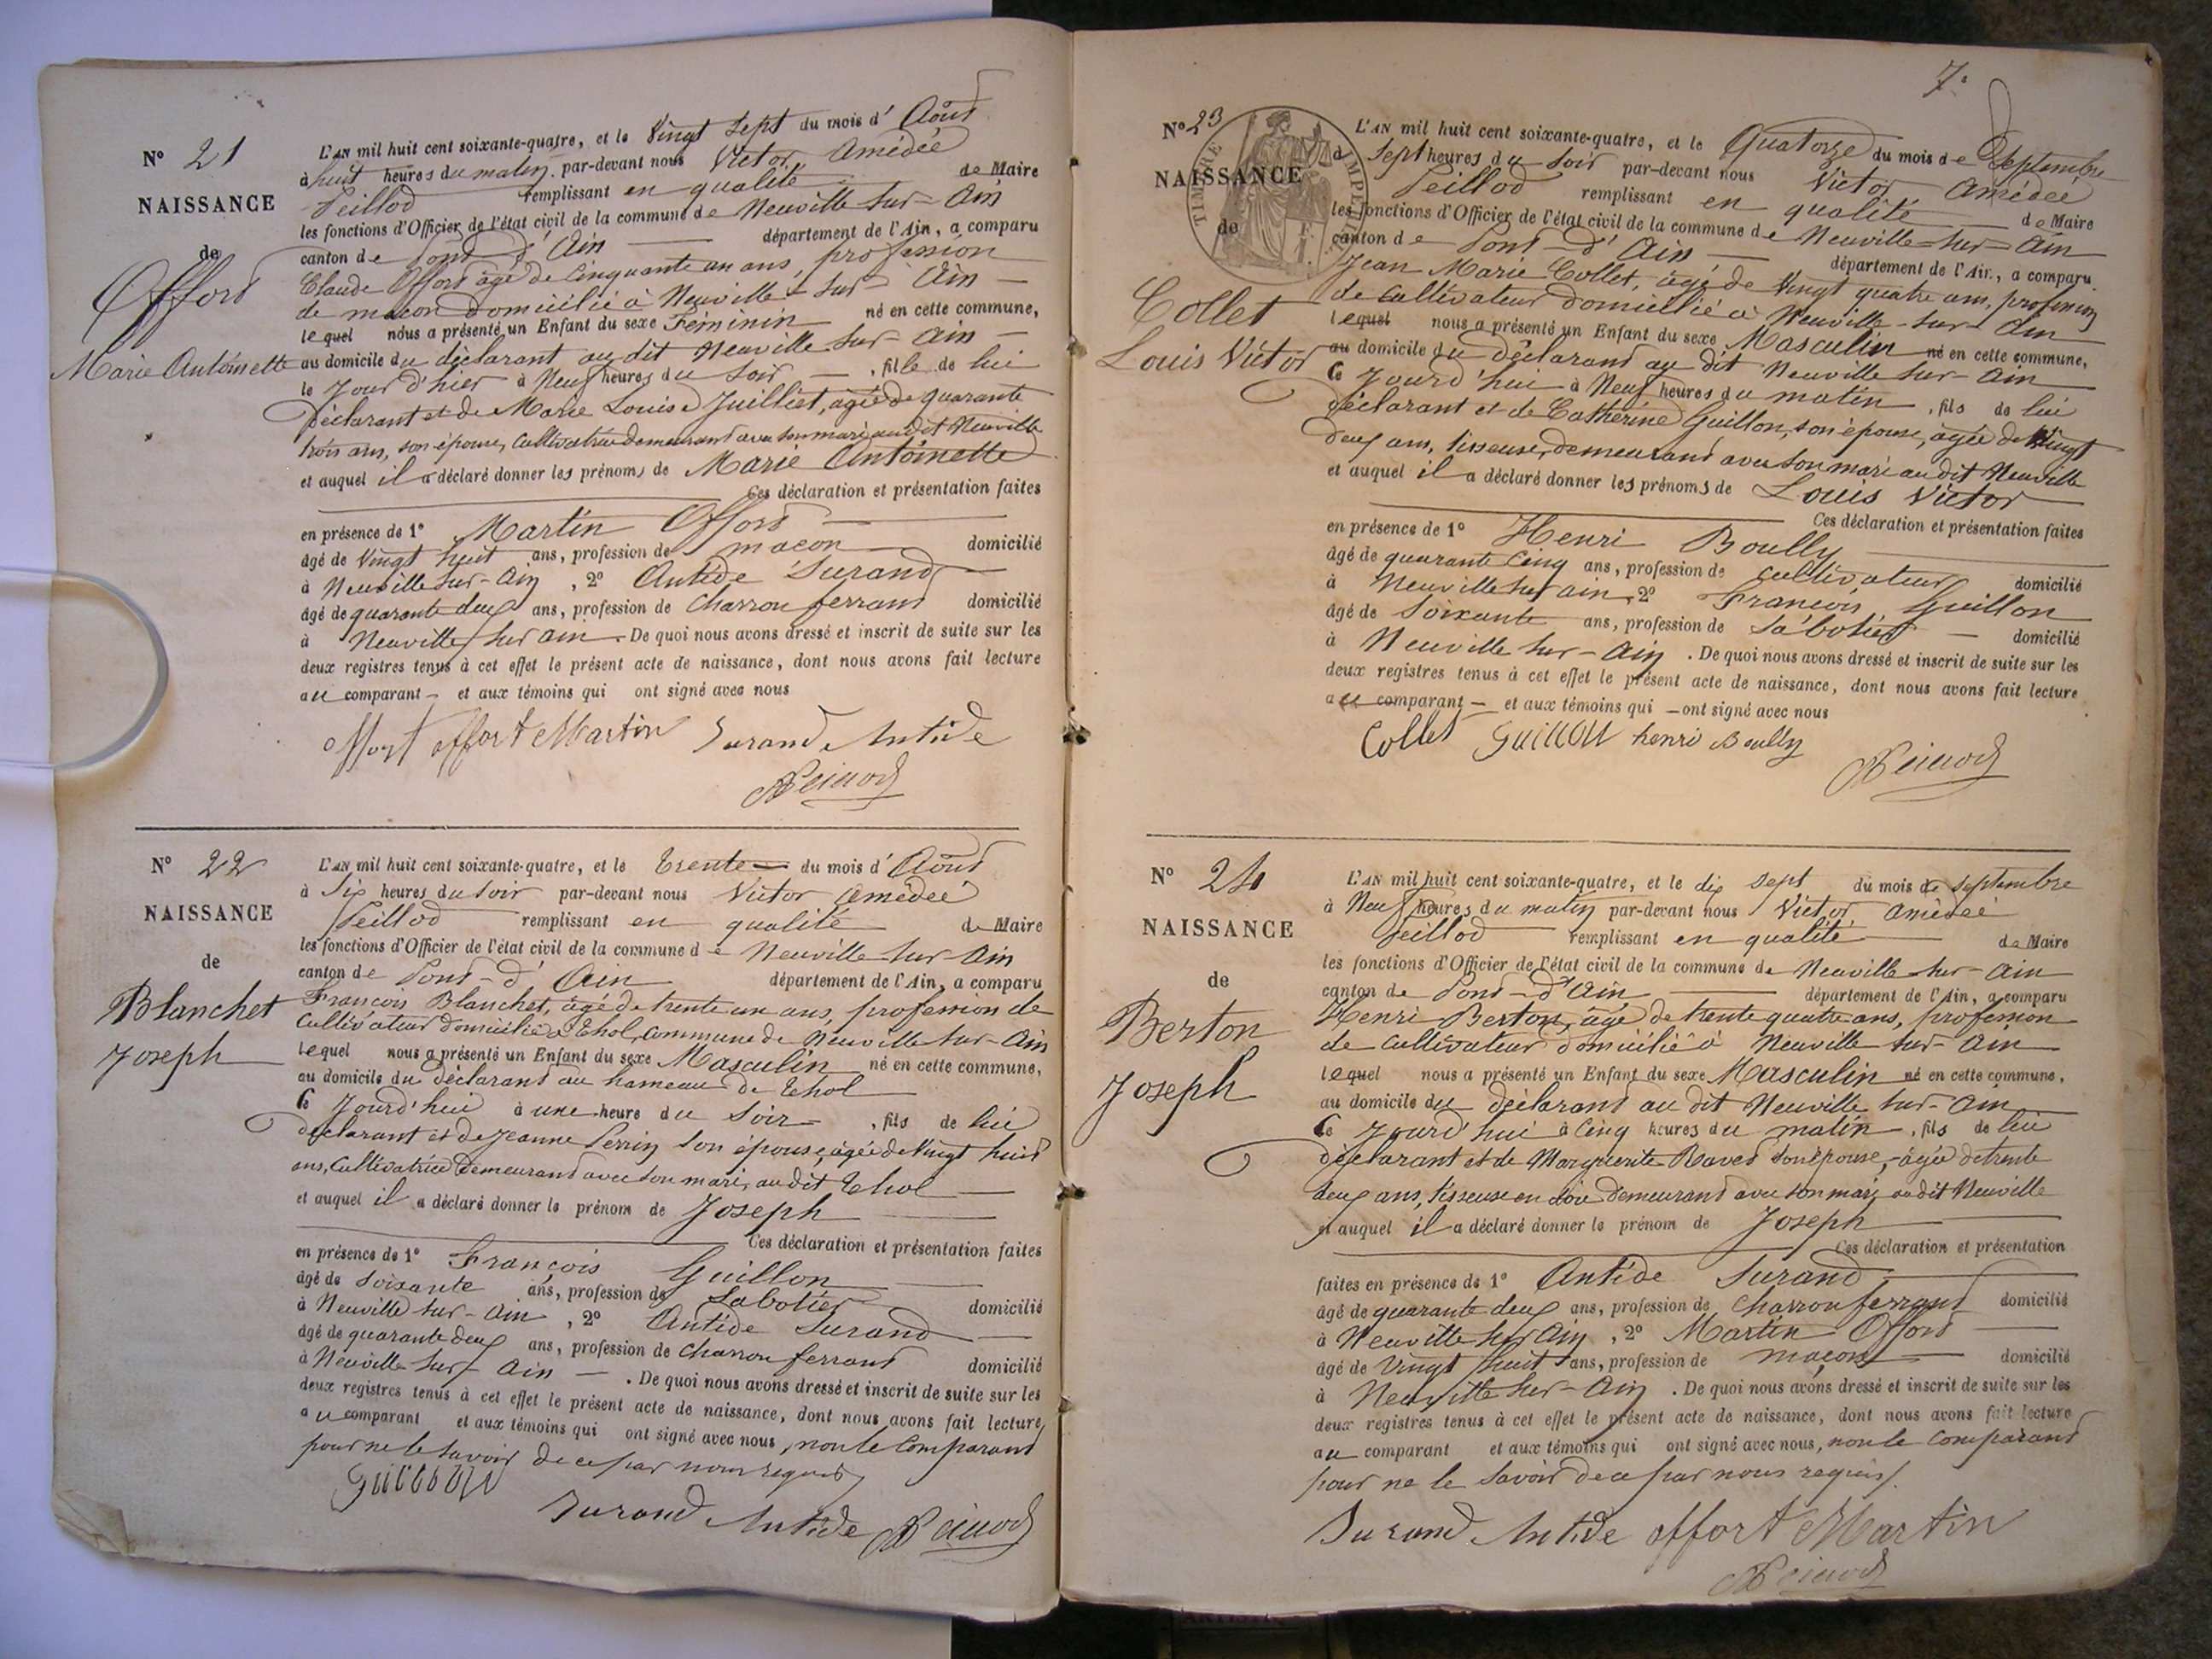 N° 21
NAISSANCE
de
Offort
Marie Antoinette
L'AN mil huit cent soixante-quatre, et le Vingt Sept du mois d' Août
à huit heures du matin par-devant nous Victor Amédée
Peillod remplissant en qualité de Maire
les fonctions d'Officier de l'état civil de la commune de Neuville sur-Ain
canton de Pont d'Ain département de l'Ain, a comparu
Claude Offort âgé de Cinquante un ans, profession
de maçon domicilié à Neuville-sur-Ain
lequel nous a présenté un Enfant du sexe Féminin né en cette commune,
au domicile du déclarant au dit Neuville sur-Ain
le Jour d'hier à Neuf heures du Soir, fille de lui
Déclarant et de Marie Louise Juilliet, âgée de quarante
trois ans, son épouse, cultivatrice demeurant avec son mari au dit Neuville
et auquel il a déclaré donner les prénoms de Marie Antoinette
Ces déclaration et présentation faites
en présence de 1° Martin Offort
âgé de Vingt huit ans, profession de maçon domicilié
à Neuville sur-Ain, 2° Antide Durand
âgé de quarante deux ans, profession de Charron ferrant domicilié
à Neuville sur ain. De quoi nous avons dressé et inscrit de suite sur les
deux registres tenus à cet effet le présent acte de naissance, dont nous avons fait lecture
au comparant - et aux témoins qui ont signé avec nous
offort offort Martin Durand Antide
Peillod
N° 22
NAISSANCE
de
Blanchet
Joseph
L'AN mil huit cent soixante-quatre, et le Trente du mois d' Août
à Six heures du soir par-devant nous Victor Amédée
Peillod remplissant en qualité de Maire
les fonctions d'Officier de l'état civil de la commune de Neuville sur-Ain
canton de Pont-d'Ain département de l'Ain, a comparu
François Blanchet, âgé de trente un ans, profession de
Cultivateur domicilié à Thol, Commune de Neuville sur-Ain
lequel nous a présenté un Enfant du sexe Masculin né en cette commune,
au domicile du déclarant au hameau de Thol
Ce Jourd'hui à une heure du Soir, fils de lui
déclarant et de Jeanne Perrin son épouse, âgée de Vingt huit
ans, Cultivatrice demeurant avec son mari, au dit Thol
et auquel il a déclaré donner le prénom de Joseph
Ces déclaration et présentation faites
en présence de 1° François Guillon
âgé de Soixante ans, profession de Sabotier domicilié
à Neuville sur-Ain, 2° Antide Durand
âgé de quarante deux ans, profession de Charron ferrant domicilié
à Neuville sur Ain. De quoi nous avons dressé et inscrit de suite sur les
deux registres tenus à cet effet le présent acte de naissance, dont nous avons fait lecture
au comparant et aux témoins qui ont signé avec nous, non le Comparant
pour ne le savoir de ce par nous requis
Guillon
Durand Antide Peillod
7.
N° 23
NAISSANCE
de
Collet
Louis Victor
TIMBRE IMPERIAL
L'AN mil huit cent soixante-quatre, et le Quatorze du mois de Septembre
à Sept heures du Soir par-devant nous Victor Amédée
Peillod remplissant en qualité de Maire
les fonctions d'Officier de l'état civil de la commune de Neuville-sur-Ain
canton de Pont-d'Ain département de l'Ain, a comparu
Jean Marie Collet, âgé de Vingt quatre ans, profession
de cultivateur domicilié à Neuville-sur-Ain
lequel nous a présenté un Enfant du sexe Masculin né en cette commune,
au domicile du déclarant au dit Neuville sur-Ain
Ce Jourd'hui à Neuf heures du matin, fils de lui
déclarant et de Catherine Guillon, son épouse, âgée de Vingt
deux ans, tisseuse, demeurant avec son mari au dit Neuville
et auquel il a déclaré donner les prénoms de Louis Victor
Ces déclaration et présentation faites
en présence de 1° Henri Boully
âgé de quarante cinq ans, profession de cultivateur domicilié
à Neuville sur ain, 2° François Guillon
âgé de Soixante ans, profession de Sabotier domicilié
à Neuville sur-Ain. De quoi nous avons dressé et inscrit de suite sur les
deux registres tenus à cet effet le présent acte de naissance, dont nous avons fait lecture
au comparant - et aux témoins qui - ont signé avec nous
Collet Guillon henri Boully
Peillod
N° 24
NAISSANCE
de
Berton
Joseph
L'AN mil huit cent soixante-quatre, et le dix Sept du mois de Septembre
à Neuf heures du matin par-devant nous Victor Amédée
Peillod remplissant en qualité de Maire
les fonctions d'Officier de l'état civil de la commune de Neuville sur-Ain
canton de Pont-d'Ain département de l'Ain, a comparu
Henri Berton, âgé de trente quatre ans, profession
de cultivateur domicilié à Neuville sur-Ain
lequel nous a présenté un Enfant du sexe Masculin né en cette commune,
au domicile du déclarant au dit Neuville sur-Ain
Ce Jourd'hui à Cinq heures du matin, fils de lui
déclarant et de Marguerite Ravet son épouse, âgée de trente
deux ans, tisseuse en soie demeurant avec son mari au dit Neuville
et auquel il a déclaré donner le prénom de Joseph
Ces déclaration et présentation
faites en présence de 1° Antide Durand
âgé de quarante deux ans, profession de Charron ferrant domicilié
à Neuville sur Ain, 2° Martin Offort
âgé de Vingt huit ans, profession de maçon domicilié
à Neuville sur-Ain. De quoi nous avons dressé et inscrit de suite sur les
deux registres tenus à cet effet le présent acte de naissance, dont nous avons fait lecture
au comparant et aux témoins qui ont signé avec nous, non le Comparant
pour ne le savoir de ce par nous requis.
Durand Antide offort Martin
Peillod